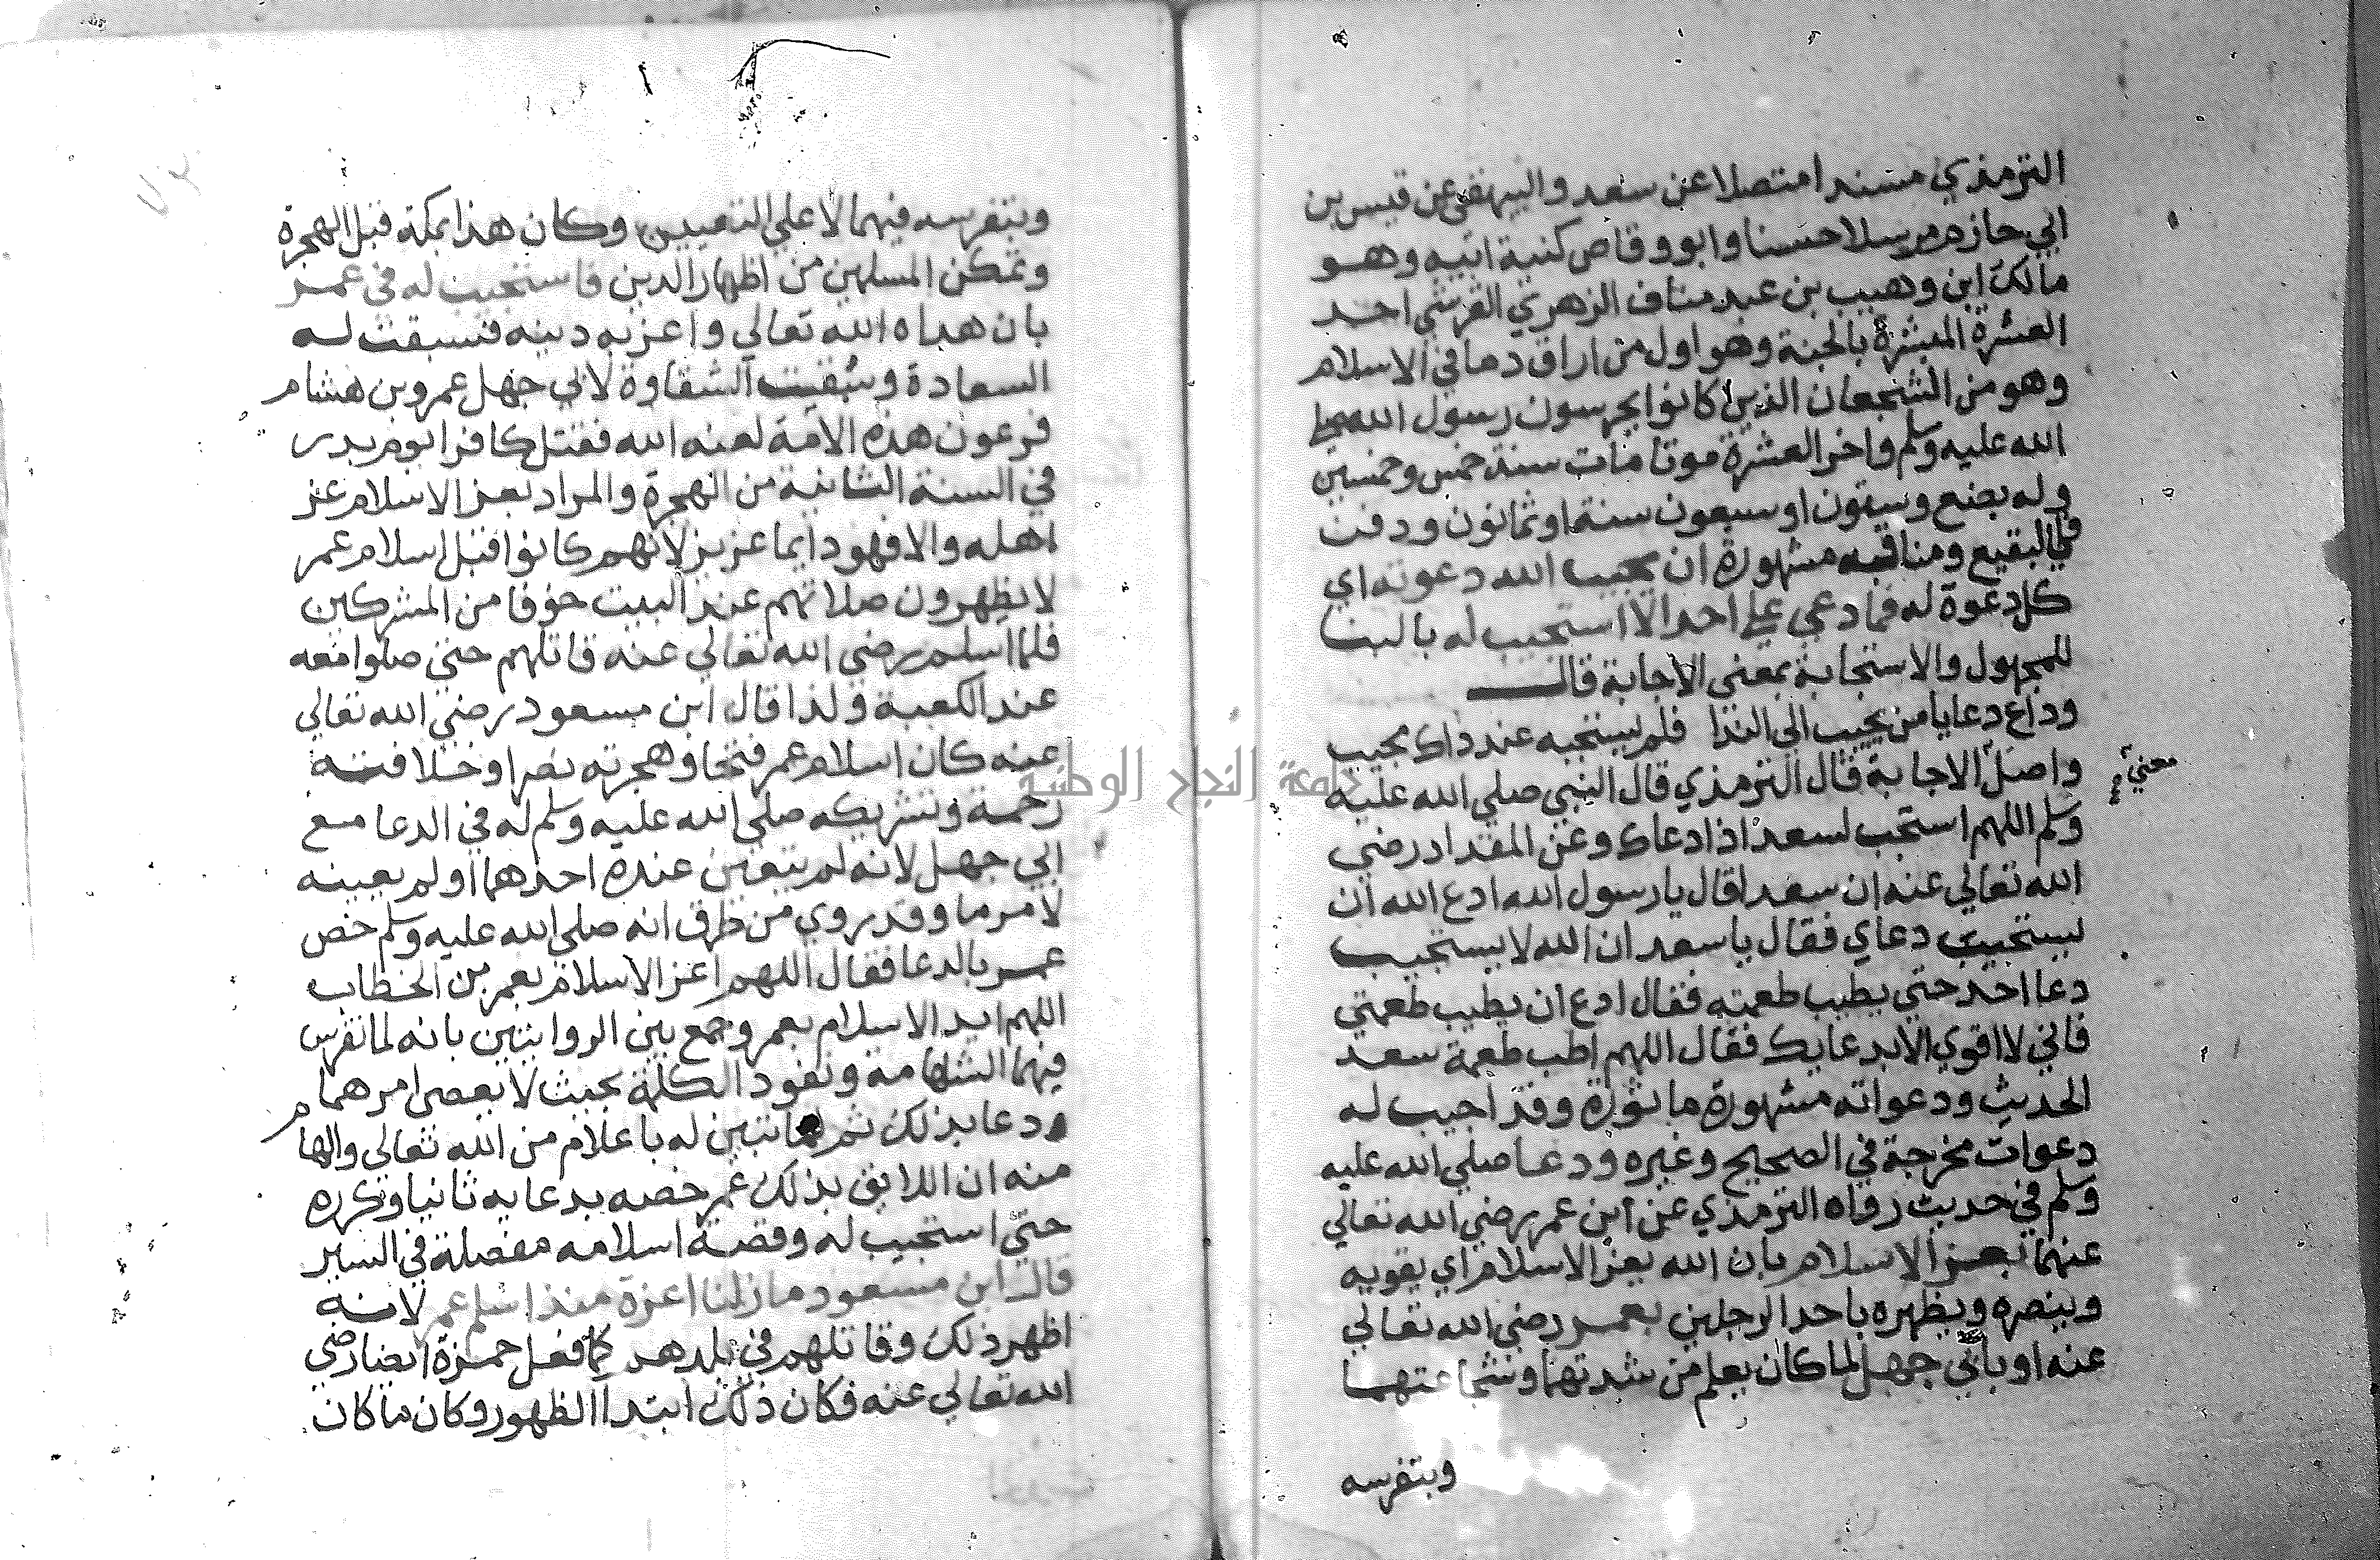 الترمذي مسندا متصلا عن سعد والبيهقي عن قيس بن
ابي حازم مرسلا حسنا وابو وقاص كنية ابيه وهو
مالك ابن وهيب بن عبد مناف الزهري القرشي احد
العشرة المبشرة بالجنة وهو اول من اراق دما في الاسلام
وهو من الشجعان الذين كانوا يحرسون رسول الله صلى
الله عليه وسلم واخر العشرة موتا مات سنة خمس وخمسين
وله بضع وستون او سبعون سنة او ثمانون ودفن
في البقيع ومناقبه مشهورة ان يجيب الله دعوته اي
كل دعوة له فما دعي على احد الا استجيب له بالبنا
للمجهول والاستجابة بمعنى الاجابة قال
وداع دعا يا من يجيب الي الندا فلم يستجبه عند ذاك مجيب
واصل الاجابة قال الترمذي قال النبي صلى الله عليه
معنى
وسلم اللهم استجب لسعد اذا دعاك وعن المقداد رضي
الله تعالي عنه ان سعدا قال يا رسول الله ادع الله ان
يستجيب دعاي فقال يا سعد ان الله لا يستجيب
دعا احد حتي يطيب طعمته فقال ادع ان يطيب طعمتي
فاني لا اقوي الا بدعايك فقال اللهم اطب طعمة سعد
الحديث ودعواته مشهورة ماثورة وقد اجيب له
دعوات مخرجة في الصحيح وغيره ودعا صلى الله عليه
وسلم في حديث رواه الترمذي عن ابن عمر رضي الله تعالي
عنهما بعز الاسلام بان الله يعز الاسلام اي يقويه
وينصره ويظهره باحد الرجلين بعمر رضي الله تعالي
عنه او بابي جهل لما كان يعلم من شدتهما وشجاعتهما
وبتفرسه
وبتفرسه فيهما لا علي التعيين وكان هذا بمكة قبل الهجرة
وتمكن المسلمين من اظهار الدين فاستجيب له في عمر
بان هداه الله تعالي واعز به دينه فسبقت له
السعادة وسبقت الشقاوة لابي جهل عمرو بن هشام
فرعون هذه الامة لعنه الله فقتل كافرا يوم بدر
في السنة الثانية من الهجرة والمراد بعز الاسلام عز
اهله والا فهو دايما عزيز لانهم كانوا قبل اسلام عمر
لا يظهرون صلاتهم عند البيت خوفا من المشركين
فلما اسلم رضي الله تعالي عنه قاتلهم حتي صلوا معه
عند الكعبة ولذا قال ابن مسعود رضي الله تعالي
عنه كان اسلام عمر فتحا وهجرته نصرا وخلافته
رحمة وتشريكه صلى الله عليه وسلم له في الدعا مع
ابي جهل لانه لم يتعين عنده احدهما او لم يعينه
لامر ما وقد روي من طرق انه صلى الله عليه وسلم خص
عمر بالدعا فقال اللهم اعز الاسلام بعمر بن الخطاب
اللهم ايد الاسلام بعمر وجمع بين الروايتين بانه لما تفرس
فيهما الشهامة ونفوذ الكلمة بحيث لا يعصى امرهما
ودعا بذلك ثم لما تبين له باعلام من الله تعالي والهام
منه ان اللايق بذلك عمر خصه بدعايه ثانيا وكرره
حتي استجيب له وقصة اسلامه مفصلة في السير
قال ابن مسعود ما زلنا اعزة منذ اسلم عمر لانه
اظهر ذلك وقاتلهم في بلدهم كما فعل حمزة ايضا رضي
الله تعالي عنه فكان ذلك ابتدا الظهور وكان ما كان
جامعة النجاح الوطنية